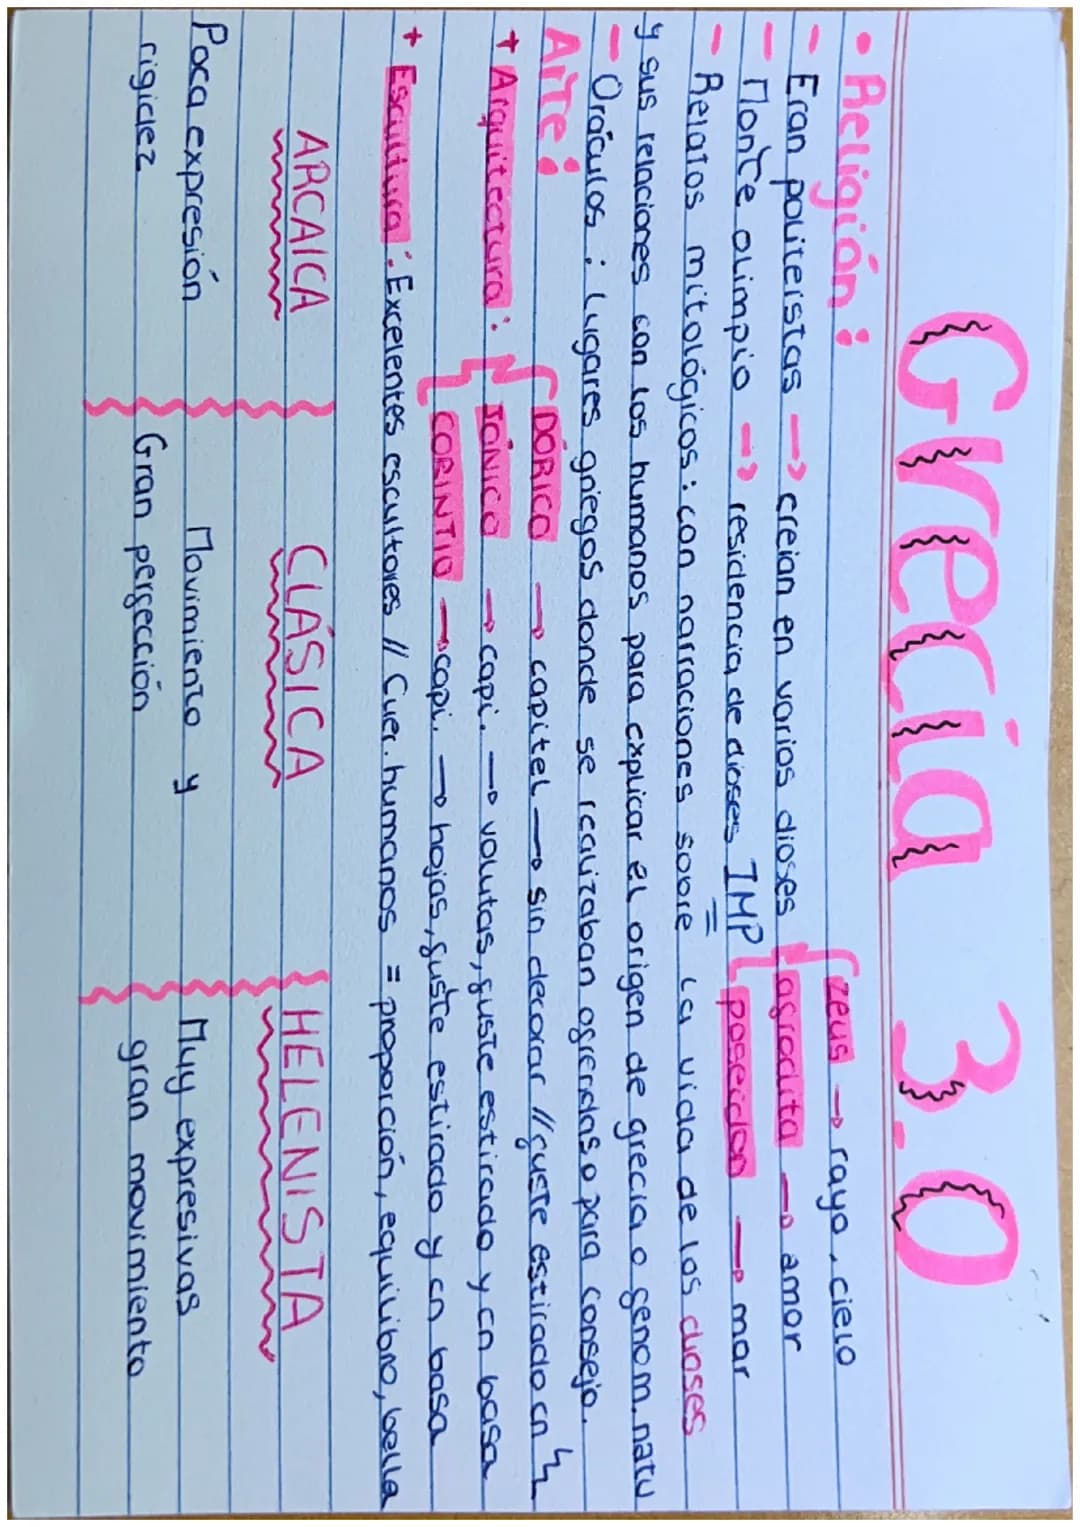 Grecia 3.0
• Religión:
- Eran politeistas → creian en varios dioses
zeus → rayo, cielo
afrodita → amor
poseidon → mar
- Monte olimpio → residencia de dioses IMP
- Relatos mitológicos: con narraciones sobre la vida de los dioses
y sus relaciones con los humanos para explicar el origen de grecia o fenom. natu
- Oráculos: Lugares griegos donde se realizaban ofrendas o para consejo.
Arte:
+ Arquitectura:
DÓRICO → capitel → sin decorar // fuste estirado en
IÓNICO → capi. → volutas, fuste estirado y cn basa
CORINTIO → capi. → hojas, fuste estirado y cn basa
+ Escultura: Excelentes escultores // Cuer. humanos = proporción, equilibrio, bella
ARCAICA CLÁSICA HELENISTA
Poca expresión Movimiento y Muy expresivas
rigidez Gran perfección gran movimiento